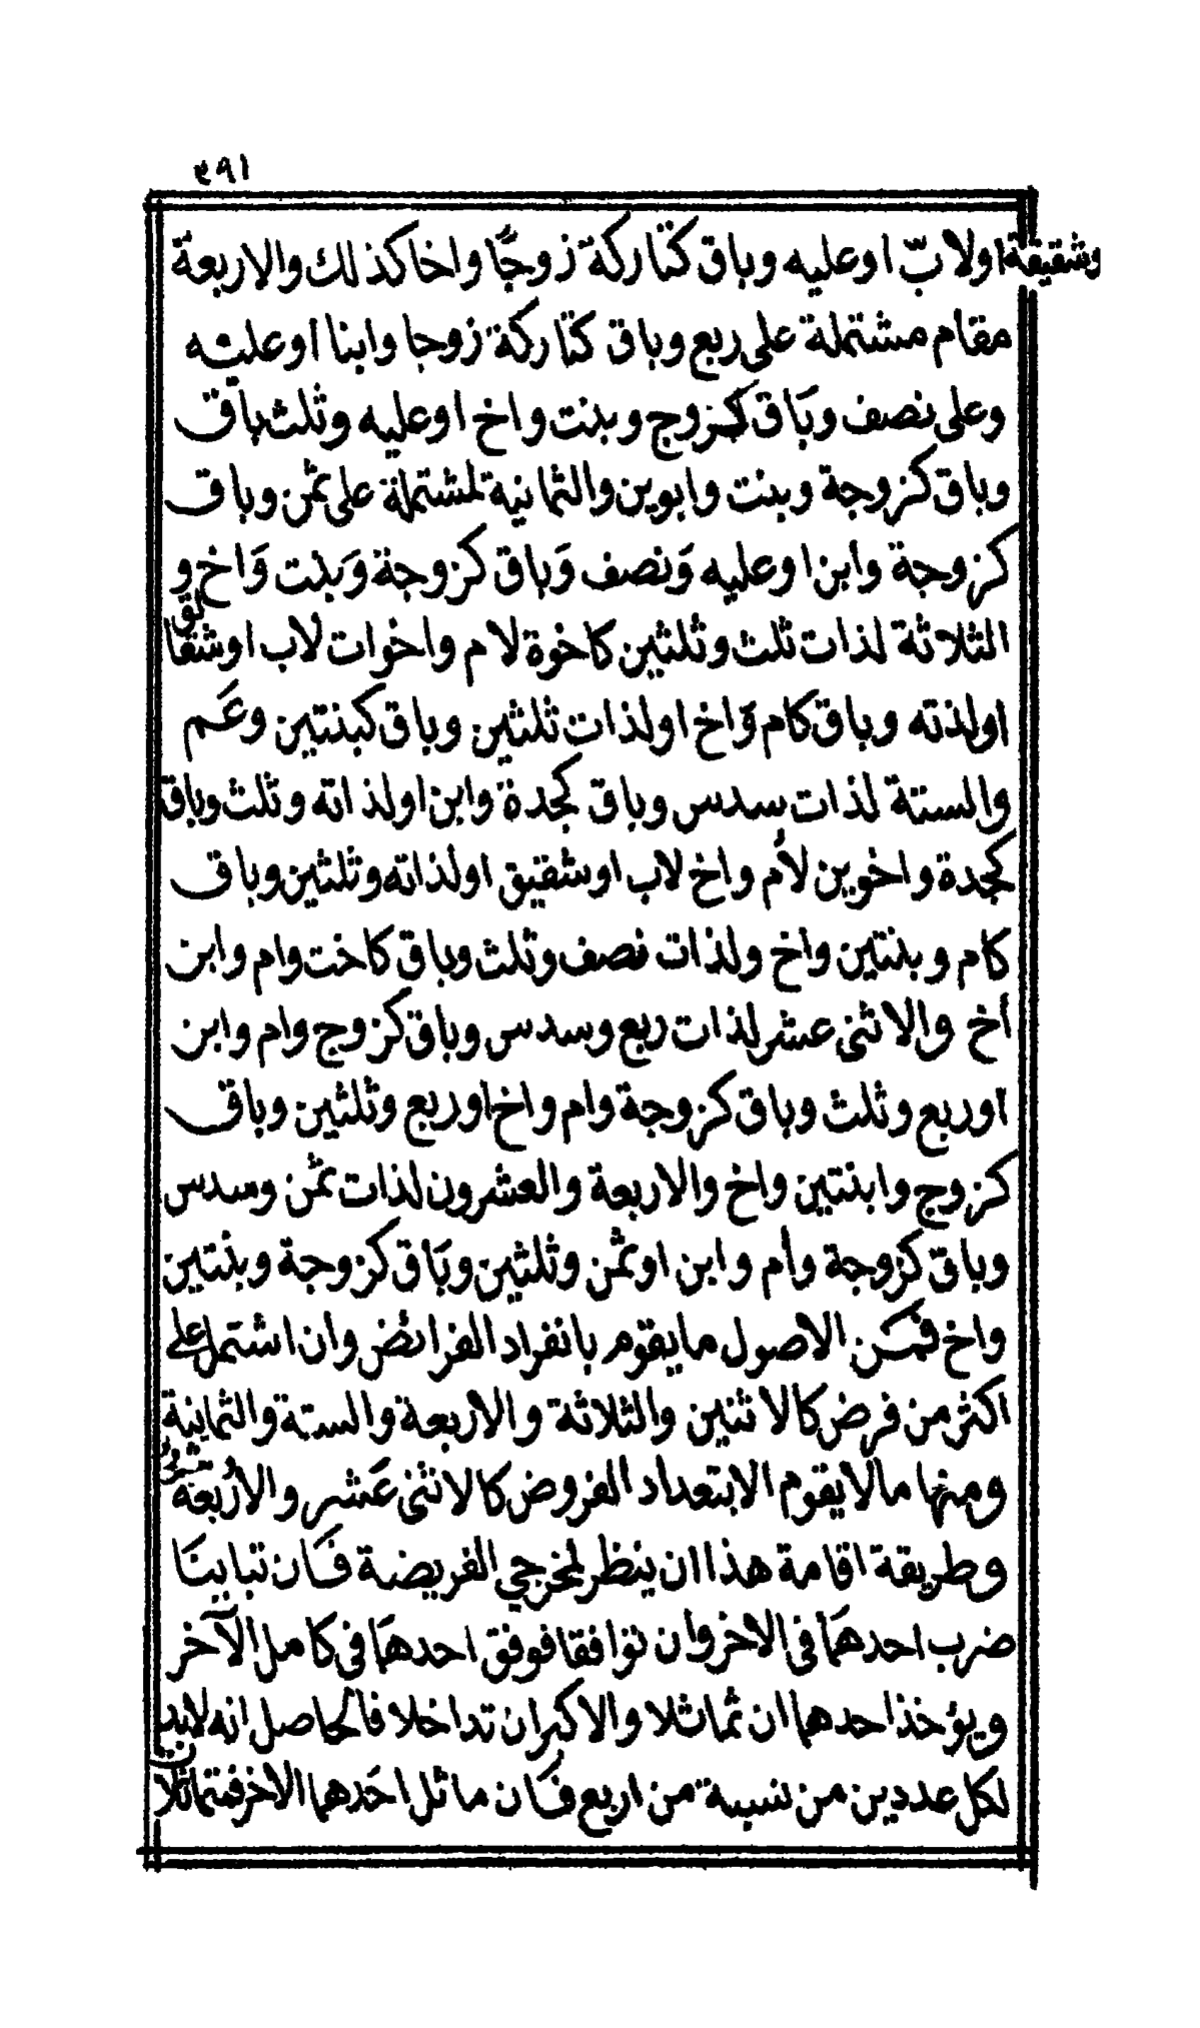 ٤٩١
وشقيقة اولابّ اوعليه وباق كتاركة زوجًا واخا كذلك والاربعة
مقام مشتملة على ربع وباق كتاركة زوجا وابنا اوعليه
وعلى نصف وباق كزوج وبنت واخ اوعليه وثلث باق
وباق كزوجة وبنت وابوين والثمانية لمشتملة على ثمن وباق
كزوجة وابن اوعليه ونصف وباق كزوجة وبنت واخ و
الثلاثة لذات ثلث وثلثين كاخوة لام واخوات لاب اوشقائق
اولذته وباق كام واخ اولذات ثلثين وباق كبنتين وعم
والستة لذات سدس وباق كجدة وابن اولذاته وثلث وباق
كجدة واخوين لأم واخ لاب اوشقيق اولذاته وثلثين وباق
كام وبنتين واخ ولذات نصف وثلث وباق كاخت وام وابن
أخ والاثنى عشر لذات ربع وسدس وباق كزوج وام وابن
اوربع وثلث وباق كزوجة وام واخ اوربع وثلثين وباق
كزوج وابنتين واخ والاربعة والعشرون لذات ثمن وسدس
وباق كزوجة وأم وابن اوثمن وثلثين وباق كزوجة وبنتين
واخ فمن الاصول مايقوم بانفراد الفرائض وان اشتمل على
اكثر من فرض كالاثنين والثلاثة والاربعة والستة والثمانية
ومنها مالايقوم الابتعداد الفروض كالاثنى عشر والأربعة
وطريقة اقامة هذا ان ينظر لمخرجي الفريضة فان تباينا
ضرب احدهما فى الاخر وان توافقا فوفق احدهما فى كامل الآخر
ويؤخذ احدهما ان تماثلا والاكبر ان تداخلا فالحاصل انه لابد
لكل عددين من نسبة من اربع فان ماثل احدهما الاخر فمتماثلان